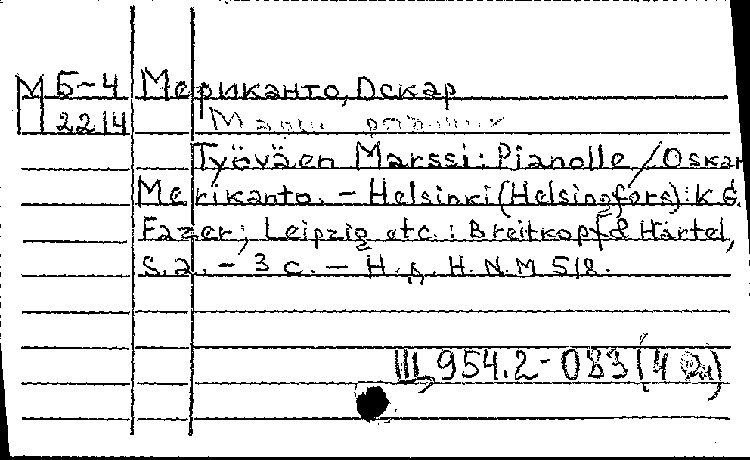 М 5-4 Мериканто, Оскар
2214 Марш рабочих
Työväen Marssi: Pjanolle / Oskar
Merikanto. - Helsinki (Helsingfors): K.G.
Fazer; Leipzig etc.: Breitkopf & Härtel,
S.a. - 3 c. - Н.д. H.N.M 518.
III 954.2-083(4